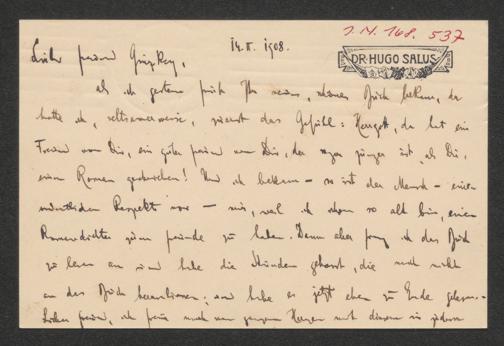 J. N. 168.537
14. II. 1908.
DR HUGO SALUS
Lieber Freund Ginzkey,
als ich gestern früh Ihr neues, schönes Buch bekam, da
hatte ich, seltsamerweise, zuerst das Gefühl: Herrgott, da hat ein
Freund von Dir, ein guter Freund von Dir, der sogar jünger ist als Du,
einen Roman geschrieben! Und ich bekam – so ist der Mensch – einen
Respekt vor – mir, weil ich schon so alt bin, einen
Romandichter zum Freunde zu haben. Dann aber fing ich das Buch
zu lesen an und habe die Stunden gehasst, die mich nicht
an das Buch heranliessen; und habe es jetzt eben zu Ende gelesen.
Lieber Freund, ich freue mich von ganzem Herzen mit diesem